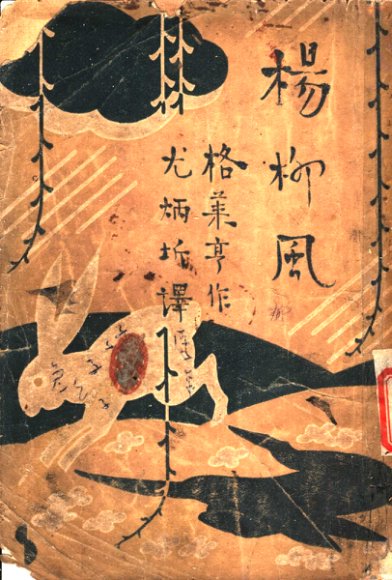 楊柳風
格萊亨作
尤炳圻譯